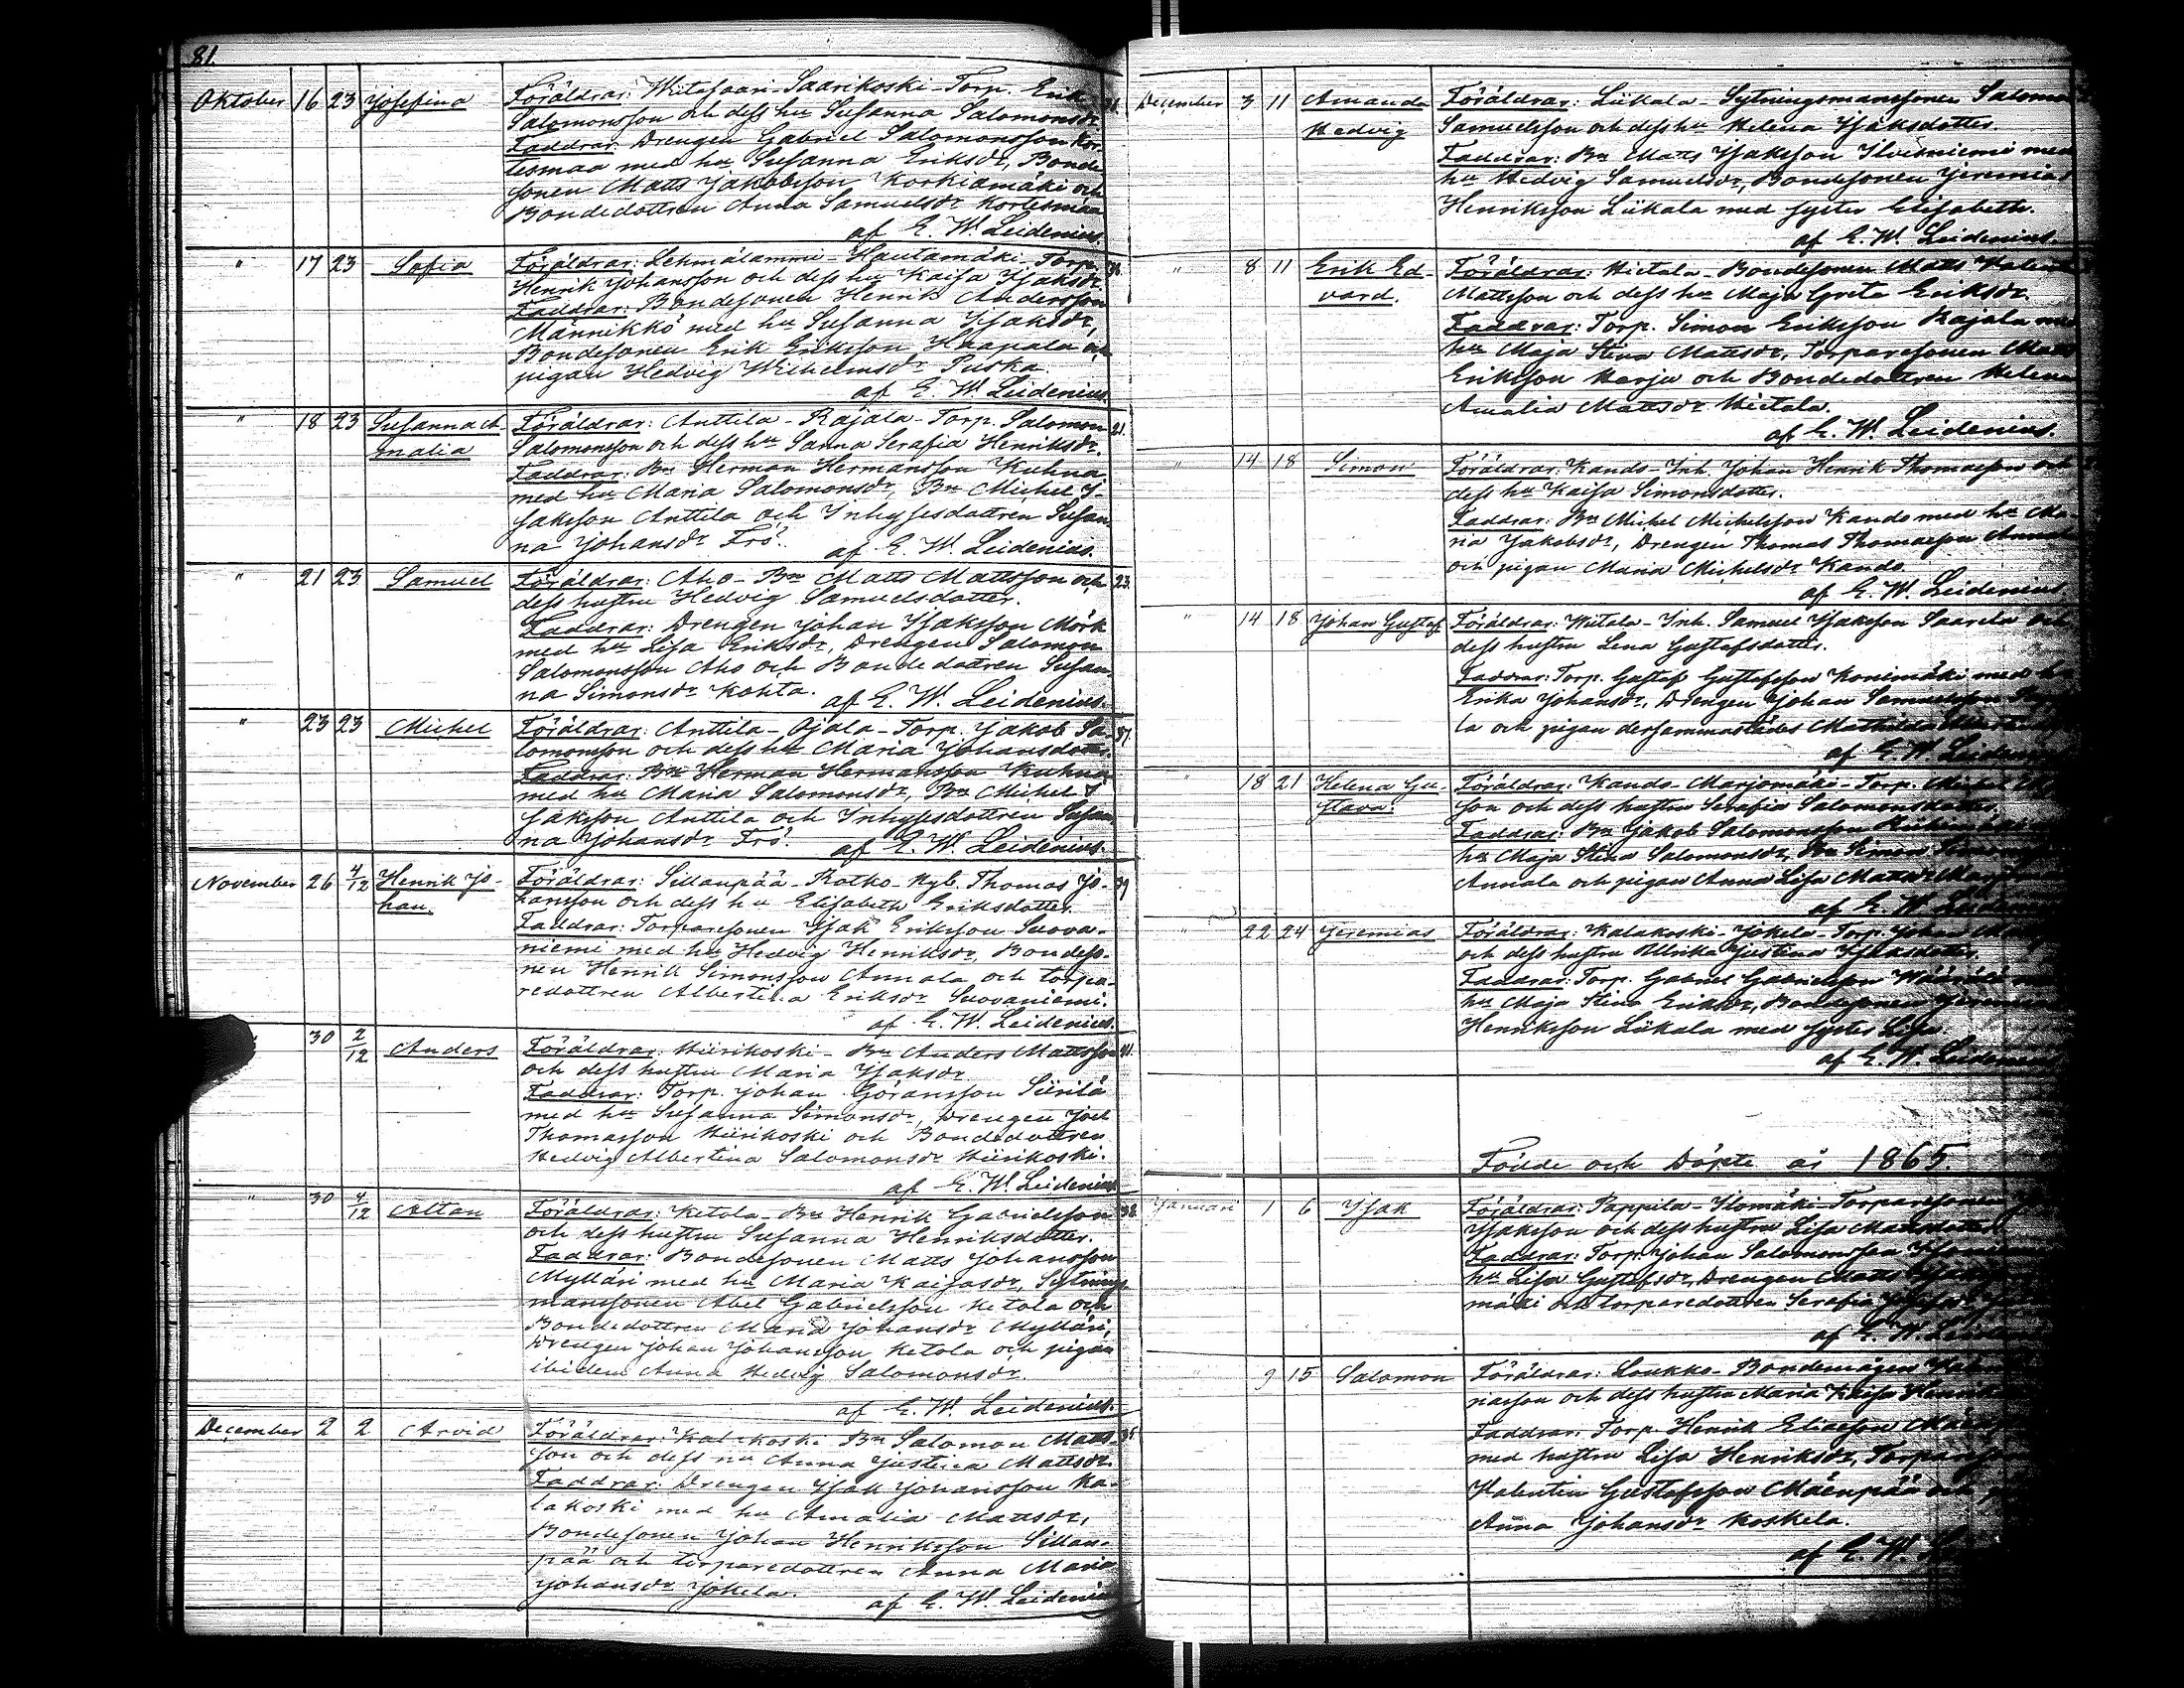 81.
Oktober 16 23 Josefina Föräldrar: Wiitasaari-Saarikoski-Torp. Erik
Salomonsson och dess hu Susanna Salomonsdr.
Faddrar: Drengen Gabriel Salomonsson Kor-
tesmaa med hu Susanna Eriksdr, Bonde-
sonen Matts Jakobsson Korkiamäki och
Bondedottren Anna Samuelsdr Kortesmaa
af E. W. Leidenius.
" 17 23 Sofia Föräldrar: Lehmälammi-Hautamäki-Torp.
Henrik Johansson och dess hu Kaisa Isaksdr.
Faddrar: Bondesonen Henrik Andersson
Männikkö med hu Susanna Isaksdr,
Bondesonen Erik Eriksson Haapala och
pigan Hedvig Wilhelmsdr Puska.
af E. W. Leidenius.
" 18 23 Susanna A- Föräldrar: Anttila-Rajala-Torp. Salomon 21.
malia Salomonsson och dess hu Sanna Serafia Henriksdr.
Faddrar: Bn Herman Hermansson Kuhna
med hu Maria Salomonsdr, Bn Michel I-
saksson Anttila och Inhysesdottren Susan-
na Johansdr Frö. af E. W. Leidenius.
" 21 23 Samuel Föräldrar: Aho-Bn Matts Mattsson och 23.
dess hustru Hedvig Samuelsdotter.
Faddrar: Drengen Johan Isaksson Mörk
med hu Lisa Eriksdr, Drengen Salomon
Salomonsson Aho och Bondedottren Susan-
na Simonsdr Kohta. af E. W. Leidenius.
" 23 23 Michel Föräldrar: Anttila-Ojala-Torp. Jakob Sa-
lomonsson och dess hu Maria Johansdotter.
Faddrar: Bn Herman Hermansson Kuhna
med hu Maria Salomonsdr, Bn Michel I-
saksson Anttila och Inhysesdottren Susan-
na Johansdr Frö. af E. W. Leidenius.
November 26 4/12 Henrik Jo- Föräldrar: Sillanpää-Ratko-Nyb. Thomas Jo-
han. hansson och dess hu Elisabeth Eriksdotter.
Faddrar: Torparesonen Isak Eriksson Suova-
niemi med hu Hedvig Henriksdr, Bondeso-
nen Henrik Simonsson Annala och torpa-
redottren Albertina Eriksdr Suovaniemi.
af E. W. Leidenius.
30 2/12 Anders Föräldrar: Hiirikoski-Bn Anders Mattsson 41.
och dess hustru Maria Isaksdr
Faddrar: Torp. Johan Göransson Siirilä
med hu Susanna Simonsdr, Drengen Joel
Thomasson Hiirikoski och Bondedottren
Hedvig Albertina Salomonsdr Hiirikoski.
af E. W. Leidenius
" 30 4/12 Altan Föräldrar: Ketola-Bn Henrik Gabrielsson 38.
och dess hustru Susanna Henriksdotter.
Faddrar: Bondesonen Matts Johansson
Mylläri med hu Maria Kaisasdr, Sytnings-
mansonen Abel Gabrielsson Ketola och
Bondedottren Maria Johansdr Mylläri,
Drengen Johan Johansson Ketola och pigan
ibidem Anna Hedvig Salomonsdr.
af E. W. Leidenius.
December 2 2 Arvid Föräldrar: Kalakoski Bn Salomon Matts- 35.
son och dess hu Anna Justina Mattsdr.
Faddrar: Drengen Isak Johansson Ka-
lakoski med hu Amalia Mattsdr,
Bondesonen Johan Henriksson Sillan-
pää och torparedottren Anna Maria
Johansdr Jokela. af E. W. Leidenius
December 3 11 Amanda Föräldrar: Liikala-Sytningsmanssonen Salomon
Hedvig Samuelsson och dess hu Helena Isaksdotter.
Faddrar: Bn Matts Isaksson Ilvesniemi med
hu Hedvig Samuelsdr, Bondesonen Jeremias
Henriksson Liikala med syster Elisabeth.
af E. W. Leidenius.
" 8 11 Erik Ed- Föräldrar: Hietala-Bondesonen Matts
vard. Mattsson och dess hu Maja Greta Eriksdr.
Faddrar: Torp. Simon Eriksson Rajala med
hu Maja Stina Mattsdr, Torparesonen Matts
Eriksson Harju och Bondedottren Helena
Amalia Mattsdr Hietala.
af E. W. Leidenius.
" 14 18 Simon Föräldrar: Kando-Inh. Johan Henrik Thomasson och
dess hu Kaisa Simonsdotter.
Faddrar: Bn Michel Michelsson Kando med hu Ma-
ria Jakobsdr, Drengen Thomas Thomasson
och pigan Maria Michelsdr Kando.
af E. W. Leidenius.
" 14 18 Johan Gustaf Föräldrar: Hietala-Inh. Samuel Isaksson Saarela och
dess hustru Lena Gustafsdotter.
Faddrar: Torp. Gustaf Gustafsson Konimäki med hu
Erika Johansdr, Drengen Johan Samuelsson
la och pigan dersammastädes Mathilda
af E. W. Leidenius
" 18 21 Helena Gu- Föräldrar: Kando-Marjomäki-Torp. Michel
stava. son och dess hustru Serafia Salomonsdotter.
Faddrar: Bn Jakob Salomonsson
hu Maja Stina Salomonsdr, Bn Simon
Annala och pigan Anna Lisa
af E. W. Leidenius
" 22 24 Jeremias Föräldrar: Kalakoski-Jokela-Torp. Johan
och dess hustru Ulrika Justina Isaksdotter.
Faddrar: Torp. Gabriel Gabrielsson
hu Maja Stina Eriksdr, Bondesonen Jeremias
Henriksson Liikala med syster Lisa.
af E. W. Leidenius
Födde och Döpte år 1865.
Januari 1 6 Isak Föräldrar: Pappila-Ilomäki-Torparesonen
Isaksson och dess hustru Lisa
Faddrar: Torp. Johan Salomonsson
hu Lisa Gustafsdr, Drengen Matts
mäki och torparedottren Serafia
af E. W. Leidenius
" 9 15 Salomon Föräldrar: Loukko-Bondemågen
niasson och dess hustru Maria Kaisa
Faddrar: Torp. Henrik Eliasson
med hustru Lisa Henriksdr,
Valentin Gustafsson Mäenpää och
Anna Johansdr Koskela.
af E. W.